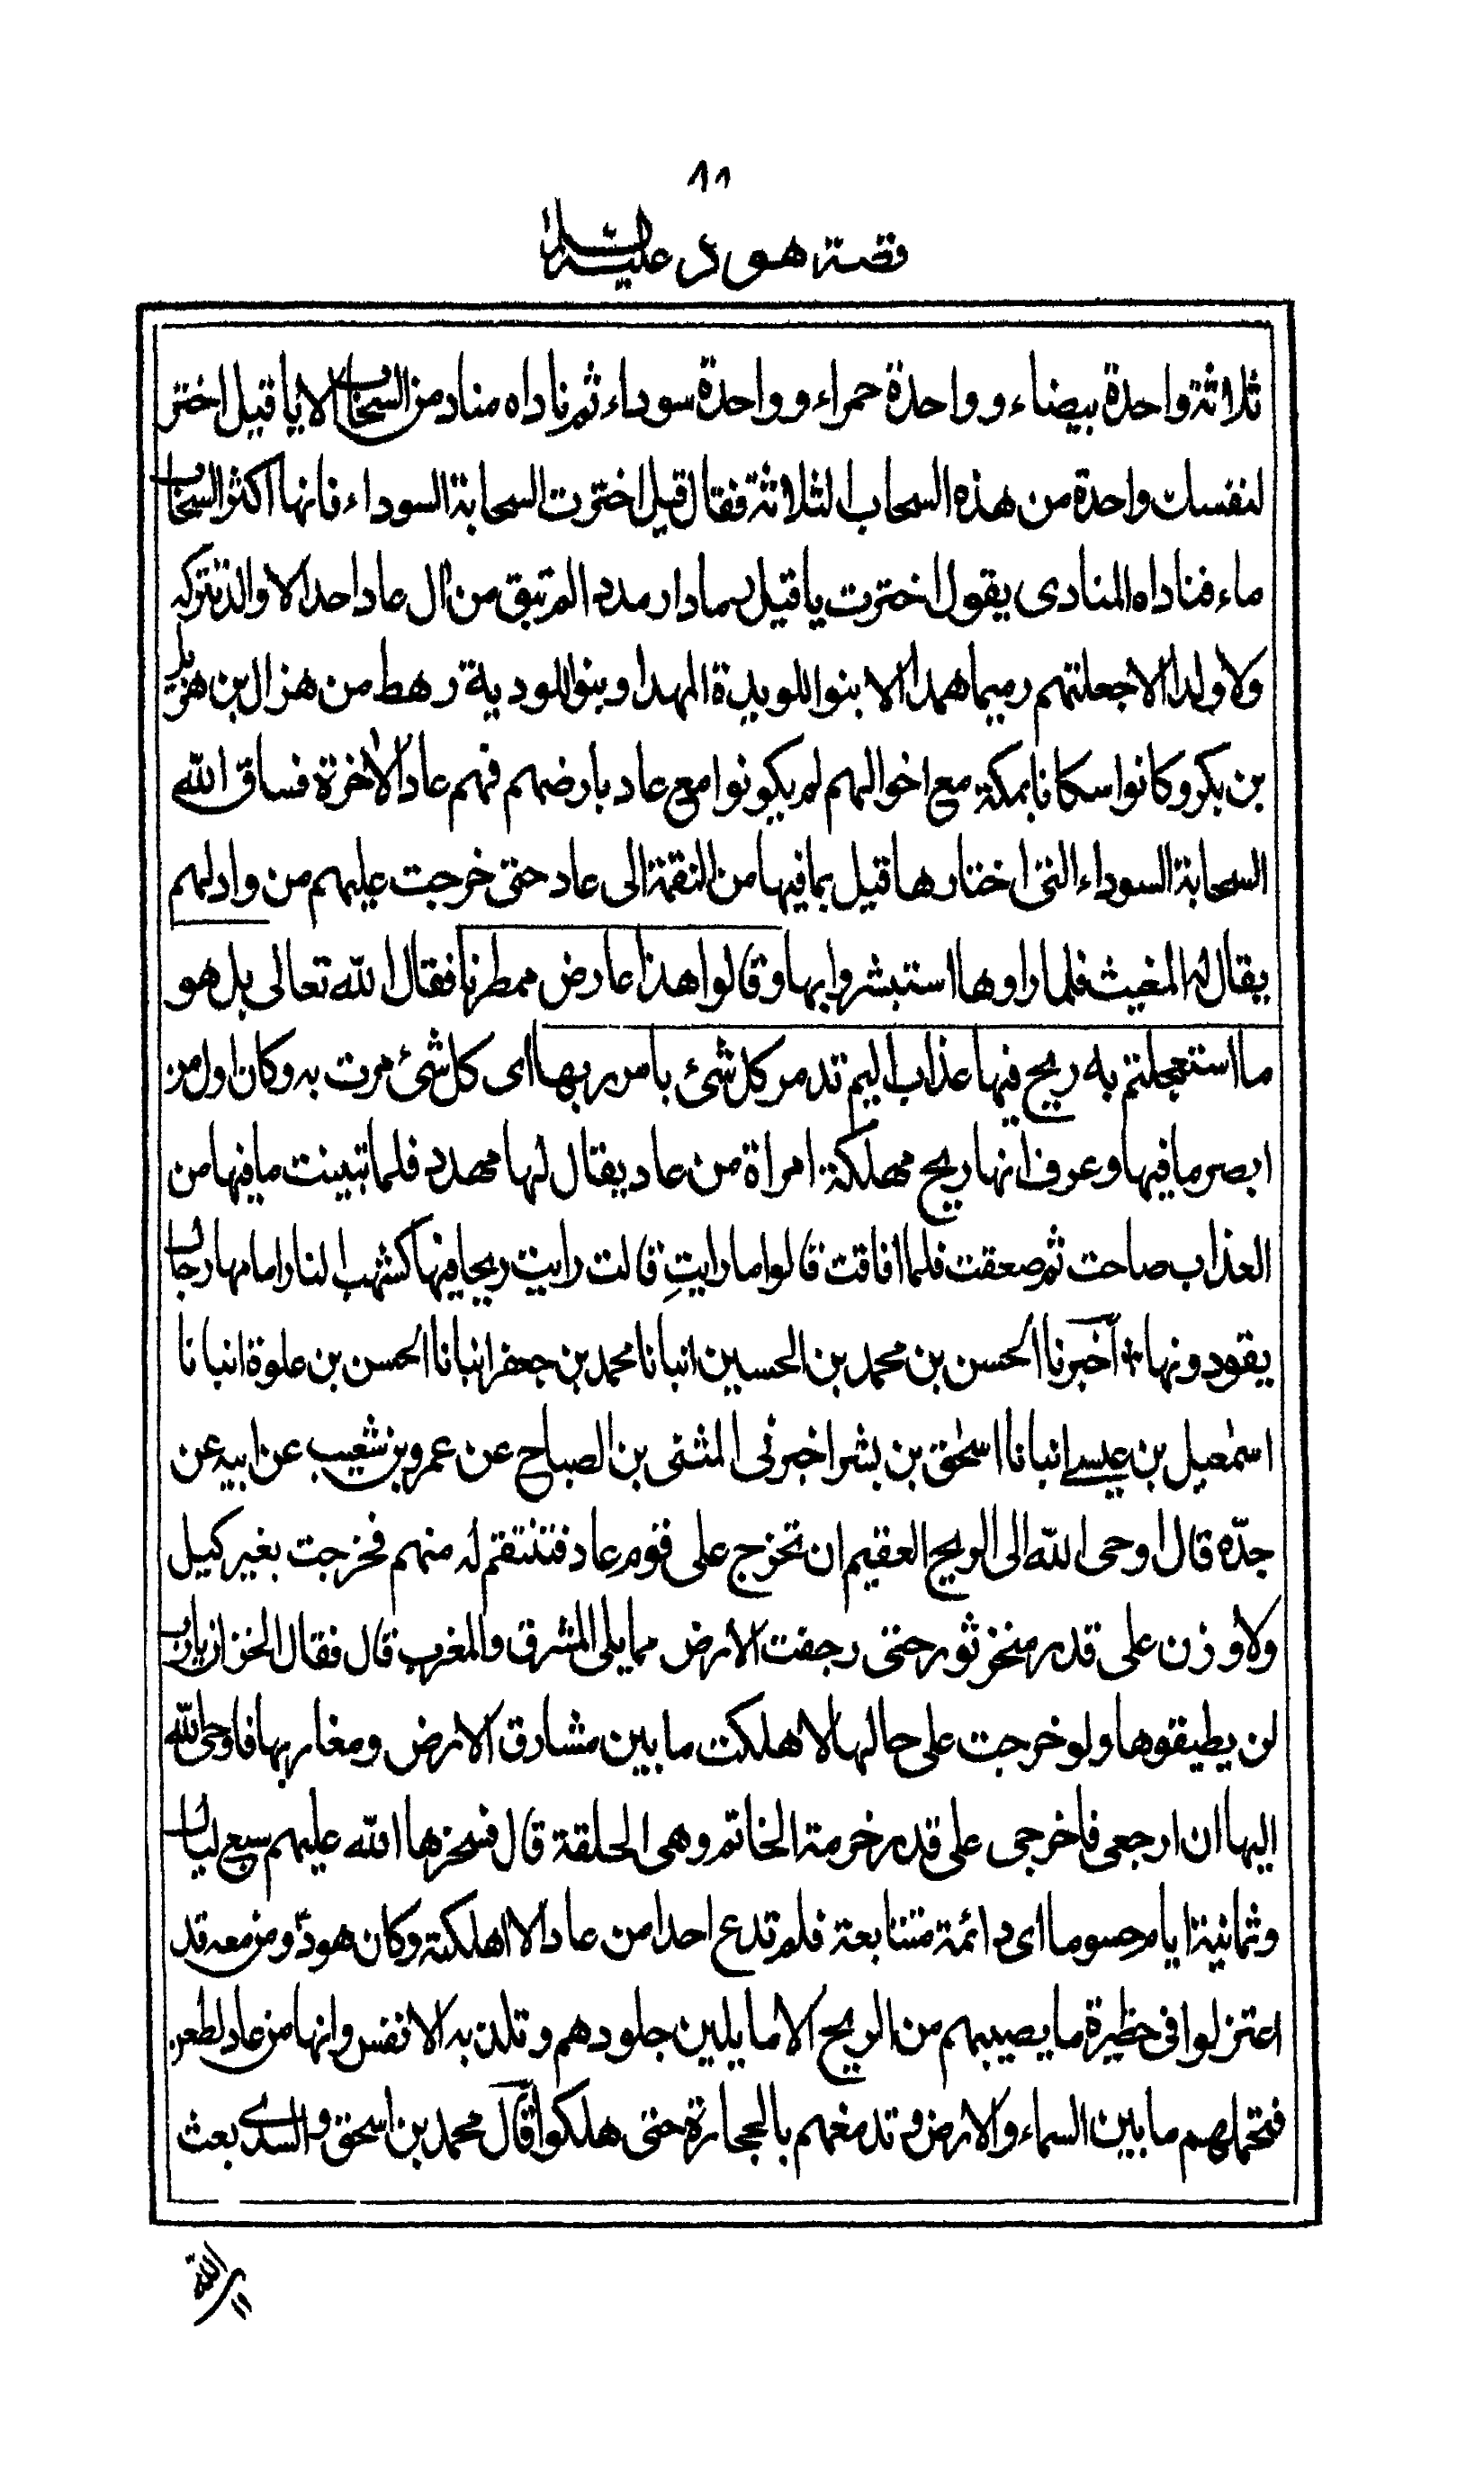 ٨٨
قصة هود عليه السلام
ثلاثة واحدة بيضاء و واحدة حمراء و واحدة سوداء ثم ناداه مناد من السحاب الا يا قيل اختر
لنفسك واحدة من هذه السحاب الثلاثة فقال قيل اخترت السحابة السوداء فانها اكثر السحاب
ماء فناداه المنادى يقول اخترت يا قيل رمادا رمدد الم تبق من ال عاد احدا لا والد تتركه
ولا ولدا الا جعلتهم رميما همدا الا بنو اللويذة المهدا وبنو اللوذية رهط من هزال بن هزيل
بن بكر وكانوا سكانا بمكة مع اخوالهم لم يكونوا مع عاد بارضهم فهم عاد الاخرة فساق الله
السحابة السوداء التى اختارها قيل بما فيها من النقمة الى عاد حتى خرجت عليهم من واد لهم
يقال له المغيث فلما راوها استبشروا بها وقالوا هذا عارض ممطرنا فقال الله تعالى بل هو
ما استعجلتم به ريح فيها عذاب اليم تدمر كل شئ بامر ربها اى كل شئ مرت به وكان اول من
ابصر ما فيها وعرف انها ريح مهلكة امراة من عاد يقال لها مهدد فلما تبينت ما فيها من
العذاب صاحت ثم صعقت فلما افاقت قالوا ما رايتِ قالت رايت ريحا فيها كشهب النار امامها رجال
يقودونها * آخبرنا الحسن بن محمد بن الحسين انبانا محمد بن جعفر انبانا الحسن بن علوة انبانا
اسمٰعيل بن عيسے انبانا اسحٰق بن بشر اخبرنى المثنى بن الصباح عن عمرو بن شعيب عن ابيه عن
جدّه قال اوحى الله الى الريح العقيم ان تخرج على قوم عاد فتنتقم له منهم فخرجت بغير كيل
ولا وزن على قدر منخر ثور حتى رجفت الارض مما يلى المشرق والمغرب قال فقال الخزان يا رب
لن يطيقوها ولو خرجت على حالها لاهلكت ما بين مشارق الارض ومغاربها فاوحى الله
اليها ان ارجعى فاخرجى على قدر خرمة الخاتم وهى الحلقة قال فسخرها الله عليهم سبع ليال
وثمانية ايام حسوما اى دائمة متتابعة فلم تدع احدا من عاد الا اهلكته وكان هود ومن معه قد
اعتزلوا فى حظيرة ما يصيبهم من الريح الا ما يلين جلودهم وتلذ به الانفس وانها من عاد لظعن
فتحملهم ما بين السماء والارض وتدمغهم بالحجارة حتى هلكوا قآل محمد بن اسحق والسدى بعث